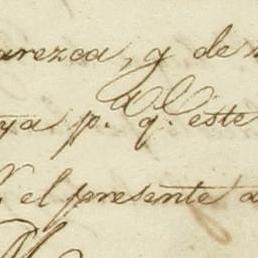 arezca, y de
ya p.ª q.e este
el presente a